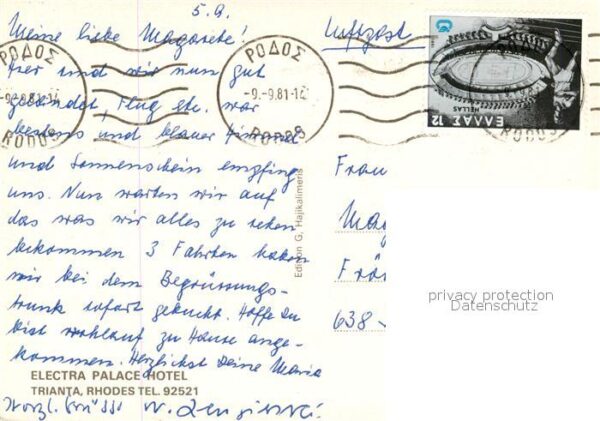 5.9.
Meine liebe Magarete!
Luftpost
Hier sind wir nun gut
gelandet, Flug etc. war
bestens und blauer Himmel
und Sonnenschein empfing
uns. Nun warten wir auf
das was wir alles zu sehen
bekommen 3 Fahrten haben
wir bei dem Begrüssungs-
trunk sofort gebucht. Hoffe Du
bist wohlauf zu Hause ange-
kommen. Herzlichst Deine Maria
ELECTRA PALACE HOTEL
TRIANTA, RHODES TEL. 92521
Herzl. Grüsse
Edition G. Hajikalimeris
ΡΟΔΟΣ
-9.-9.81-1
RODOS
ΡΟΔΟΣ
-9.-9.81-1
RODOS
RODOS
ΕΛΛΑΣ 12
HELLAS
Frau
Mag
Frö
638-
privacy protection
Datenschutz